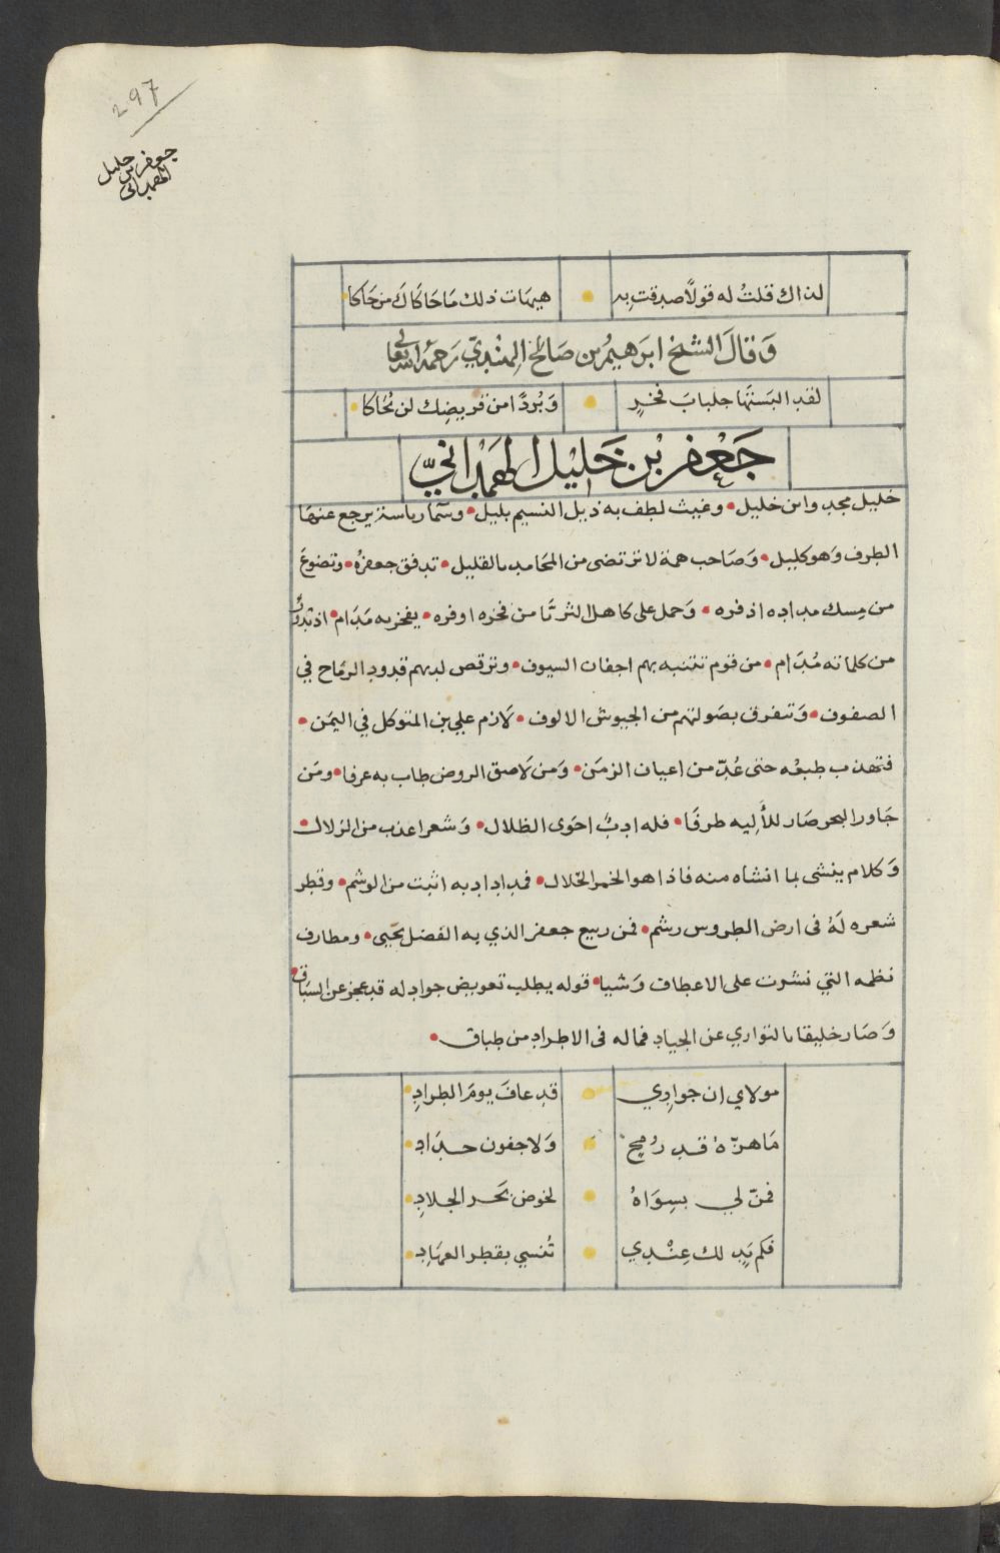 297
جعفر بن خليل
الهمداني
لذاك قلتُ له قولًا صدقت به • هيهَات ذلك مَا حَاكَاكَ من حَاكا
وَقالَ الشيخ ابرَهيمُ بن صَالح المنْديّ رَحمَهُ الله تعالى
لقد البَستَهَا جلبابَ فخرٍ • وَبُردًا من قريضِك لن تُحَاكا
جَعْفر بْن خَليْل الهَمْدَانيّ
خليل مجد وابن خليل • وغيث لطف به ذيل النسيم بليل • وسَمَا رياسة يرجع عنهَا
الطرف وَهو كليل • وَصَاحب همة لا ترتضى من المحَامد بالقليل • تدفق جعفرُه • وتضوعَ
من مِسك مداده اذفره • وَحمل على كاهل الثريَّا من فخره اوفره • يفخر به مَدَام • اذ تدور
من كلماته مُدَام • من قوم تنتبه بهم اجفان السيوف • وترقص لديهم قدود الرمَاح في
الصفوف • وَتتفرق بصَولتهم من الجيوش الالوف • لَازم علي بن المتوكل في اليمَن •
فتهذب طبعُه حتى عُدّ من اعيان الزمَن • وَمن لَاصق الروض طاب به عرفا • ومَن
جَاور البحر صَار للألِيه طرفَا • فله ادبٌ احَوى الظلال • وَشعر اعذب من الزلال •
وَكلام ينشى بما انشاه منه فاذا هو الخمر الحَلال • فمداد ادبه اثبت من الوشم • وقطر
شعره لَهُ فى ارض الطروس رشم • فمن ربيع جعفر الذي به الفضل يحَيى • ومطارف
نظمه التي نشرت على الاعطاف وَشيا • قوله يطلب تعويض جواد له قد عجز عن السبَاق •
وَصَار خليقا بالتواري عن الجياد فماله فى الاطراد من طباق •
مولاي ان جوادِي • قد عافَ يومَ الطرادِ •
مَا هزّه قد رُمحٍ • وَلا جفون حدَاد •
فمَن لي بسِوَاهُ • لخوض بَحر الجلادِ •
فكم يَدٍ لك عِنْدِي • تُنسي بقطر العهَادِ •